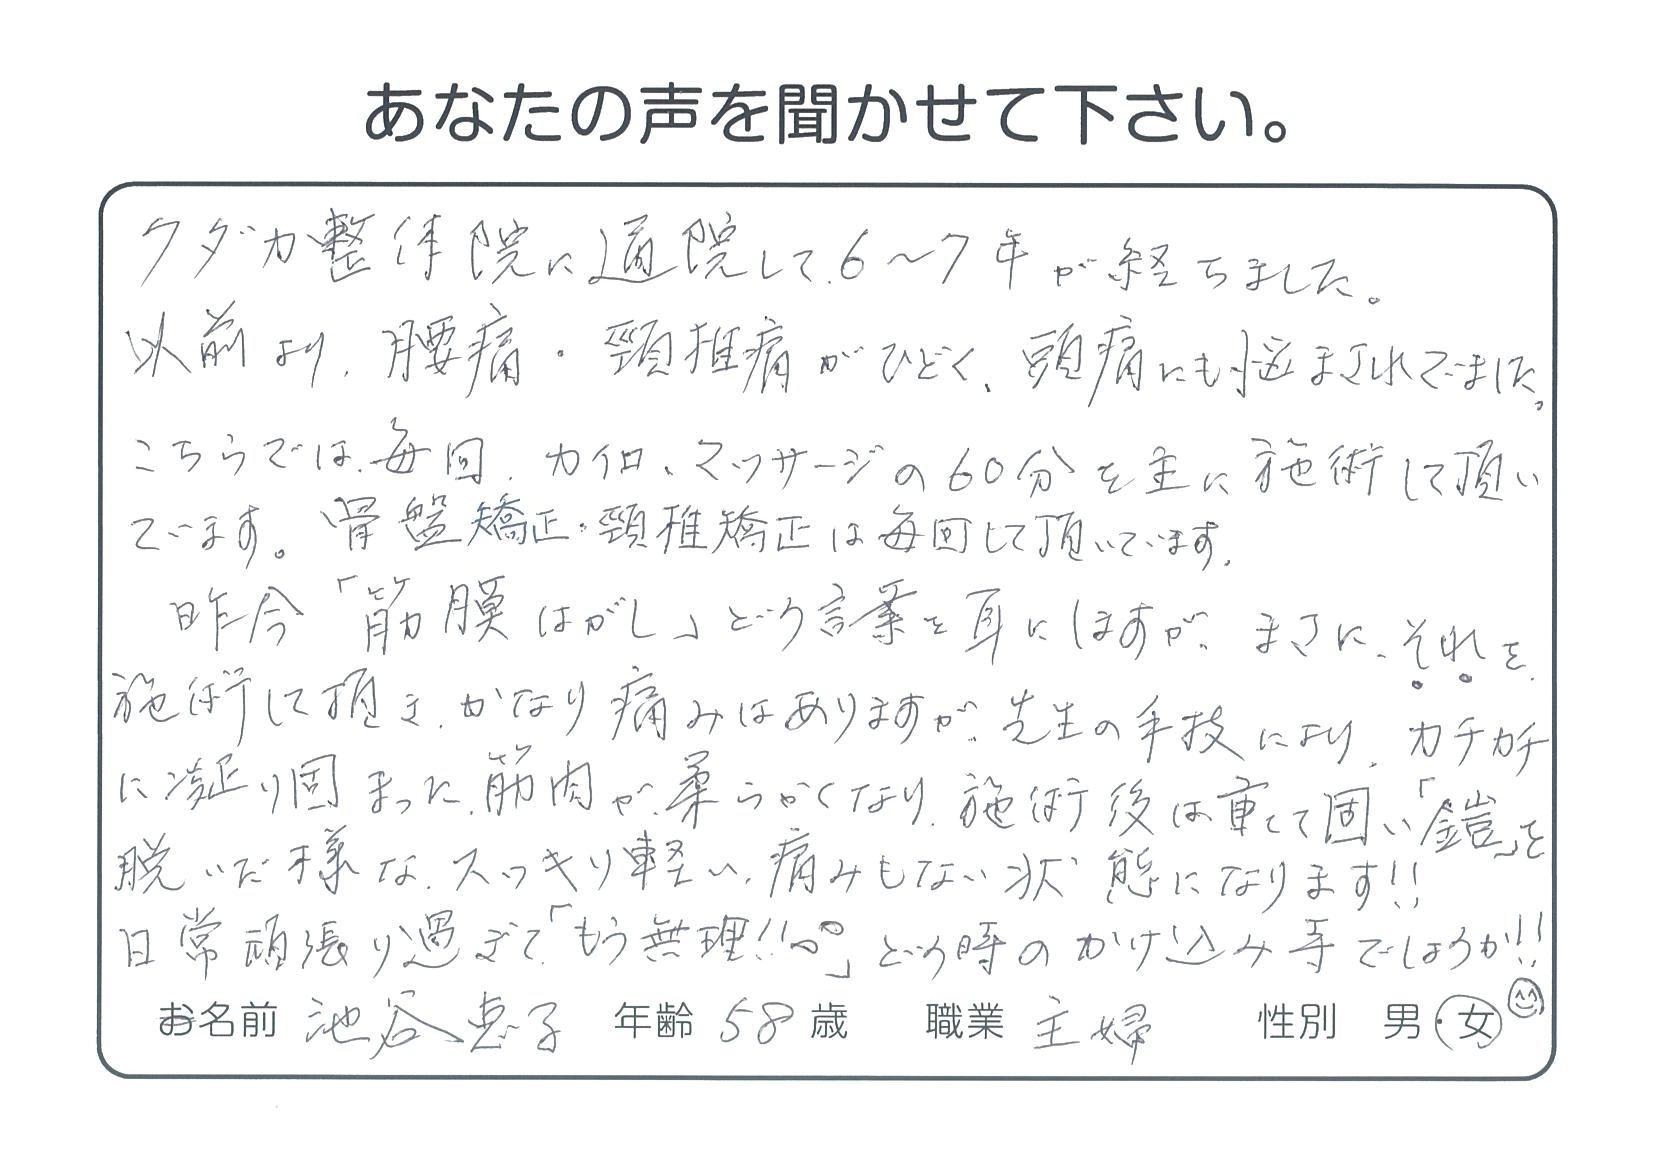 あなたの声を聞かせて下さい。
クダカ整体院に通院して、6〜7年が経ちました。
以前より、腰痛・頸椎痛がひどく、頭痛にも悩まされていました。
こちらでは、毎回、カイロ、マッサージの60分を主に施術して頂い
ています。骨盤矯正・頸椎矯正は毎回して頂いています。
昨今「筋膜はがし」という言葉を耳にしますが、まさに、それを、
施術して頂き、かなり痛みはありますが、先生の手技により、カチカチ
に凝り固まった、筋肉が、柔らかくなり、施術後は重くて固い「鎧」を
脱いだ様な、スッキリ軽い、痛みもない状態になります!!
日常頑張り過ぎて、「もう無理!!」という時のかけ込み寺でしょうか!!
お名前 池谷恵子 年齢 58 歳 職業 主婦 性別 男・女